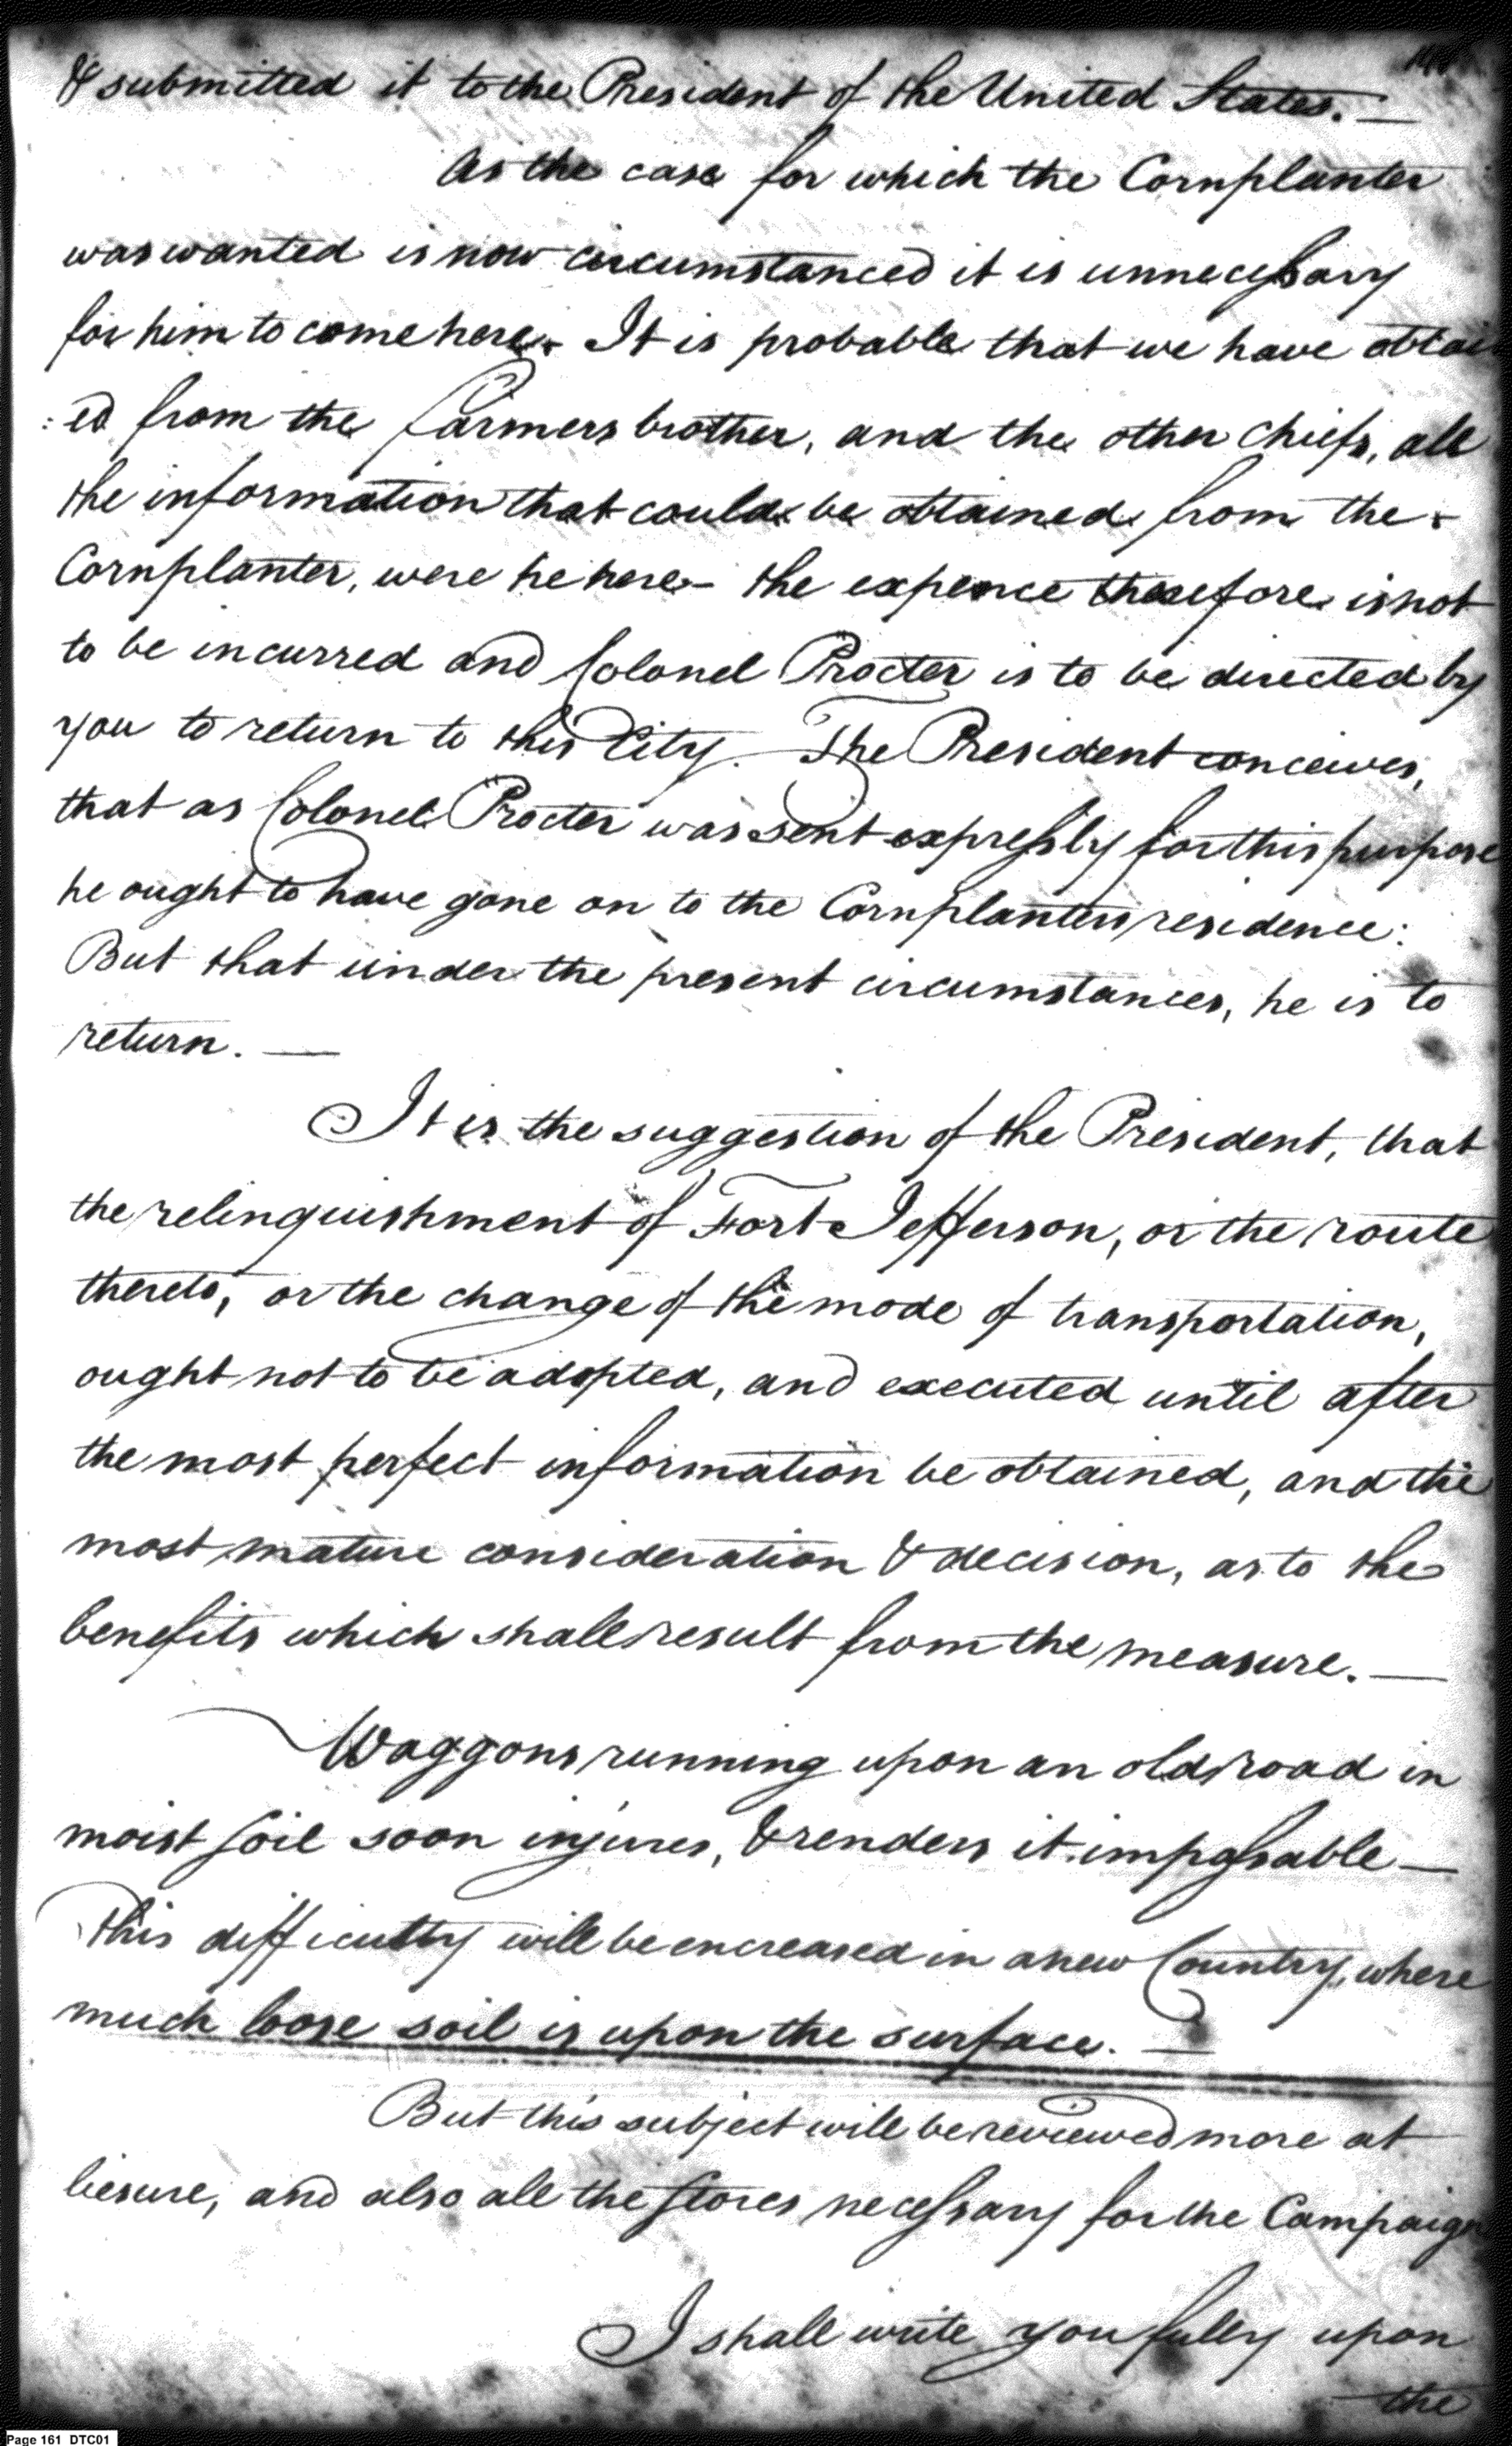 & submitted it to the President of the United States. —
As the case for which the Cornplanter
was wanted is now circumstanced it is unnecessary
for him to come here. It is probable that we have obtain
:ed from the farmers brother, and the other chiefs, all
the information that could be obtained from the
Cornplanter, were he here – the expence therefore is not
to be incurred and Colonel Procter is to be directed by
you to return to this City. The President conceives,
that as Colonel Procter was sent expressly for this purpose
he ought to have gone on to the Cornplanters residence:
But that under the present circumstances, he is to
return. —
It is the suggestion of the President, that
the relinquishment of Fort Jefferson, or the route
thereto, or the change of the mode of transportation,
ought not to be adopted, and executed until after
the most perfect information be obtained, and the
most mature consideration & decision, as to the
benefits which shall result from the measure. —
Waggons running upon an old road in
moist soil soon injures, & renders it impassable —
This difficulty will be encreased in a new Country, where
much loose soil is upon the surface. —
But this subject will be reviewed more at
liesure, and also all the stores necessary for the Campaign
I shall write you fully upon
the
Page 161 DTC01